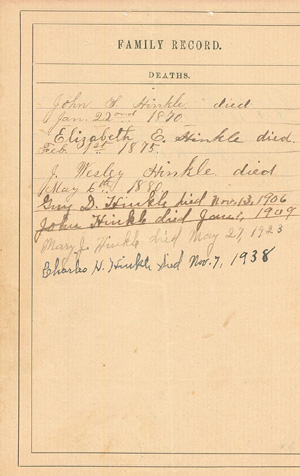 FAMILY RECORD.
DEATHS.
John S. Hinkle died
Jan. 22nd 1870
Elizabeth E. Hinkle died.
Feb 1st 1875.
J. Wesley Hinkle died
May 6th 188
Guy D. Hinkle died Nov. 13, 1906
John Hinkle died June, 1909
Mary J. Hinkle died May 27, 1923
Charles H. Hinkle Died Nov. 7, 1938